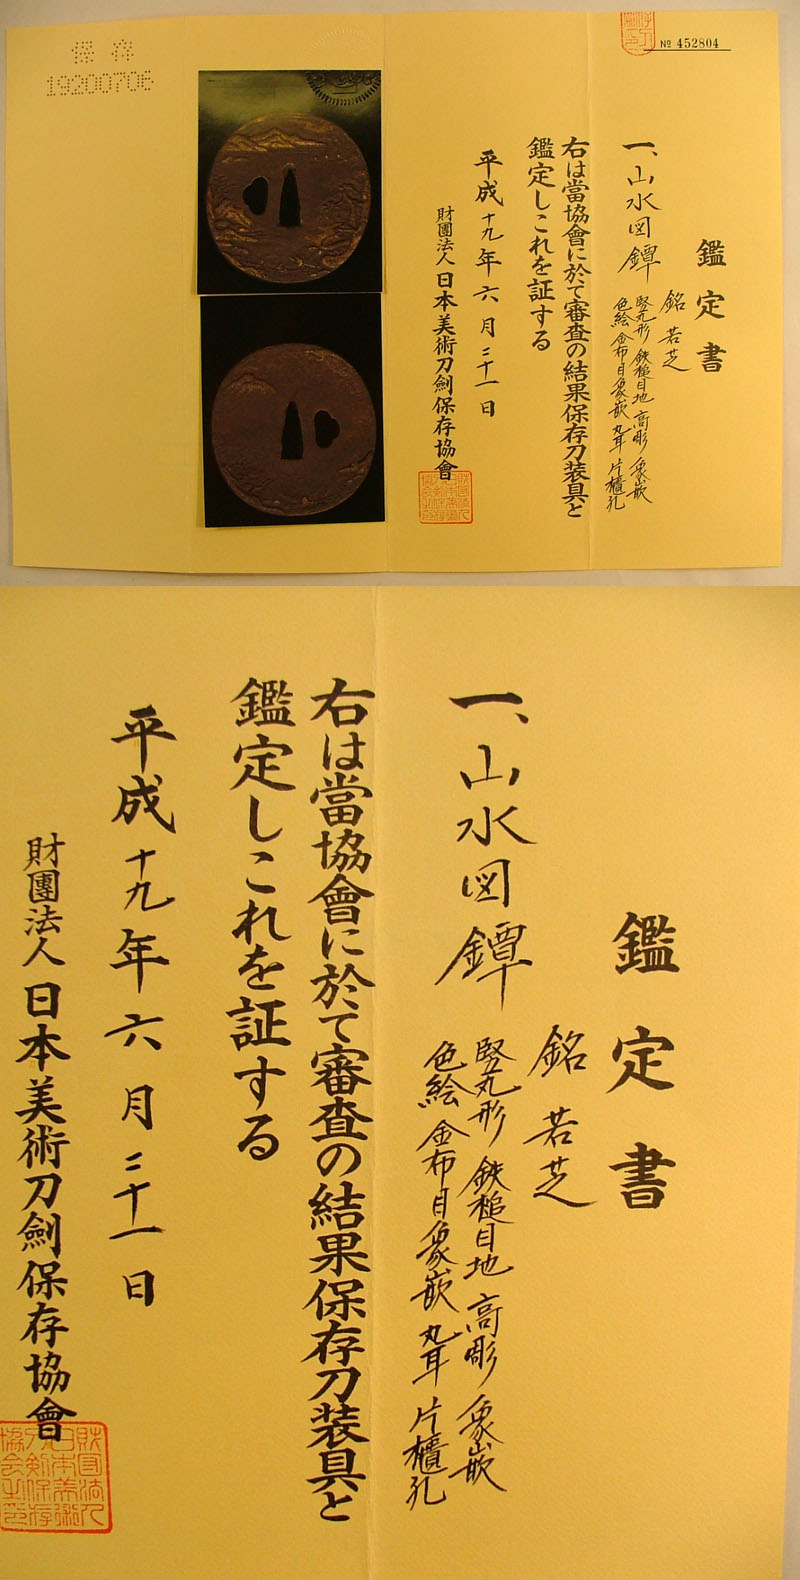 № 452804
鑑定書
銘 若芝
一、山水図鐔
竪丸形 鉄槌目地 高彫 象嵌
色絵 金布目象嵌 丸耳 片櫃孔
右は當協會に於て審査の結果保存刀装具と
鑑定しこれを証する
平成十九年六月二十一日
財團法人 日本美術刀劍保存協會
保存
19200706
鑑定書
銘 若芝
一、山水図鐔
竪丸形 鉄槌目地 高彫 象嵌
色絵 金布目象嵌 丸耳 片櫃孔
右は當協會に於て審査の結果保存刀装具と
鑑定しこれを証する
平成十九年六月二十一日
財團法人 日本美術刀劍保存協會